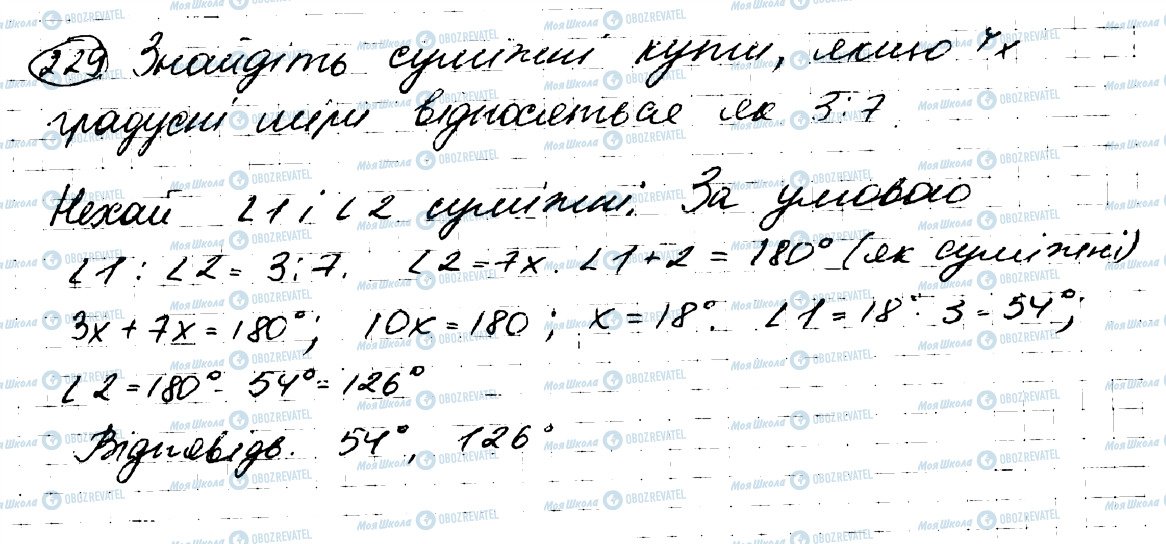 229 Знайдіть суміжні кути, якщо їх
градусні міри відносяться як 3:7.
Нехай ∠1 і ∠2 суміжні. За умовою
∠1 : ∠2 = 3:7. ∠2 = 7x. ∠1 + 2 = 180° (як суміжні)
3x + 7x = 180°; 10x = 180; x = 18°. ∠1 = 18° · 3 = 54°;
∠2 = 180° - 54° = 126°
Відповідь. 54°, 126°